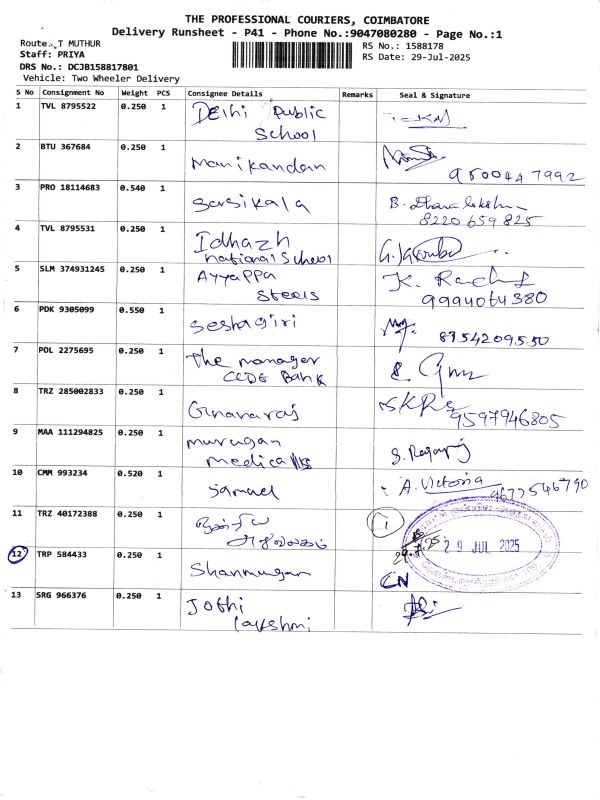 THE PROFESSIONAL COURIERS, COIMBATORE
Delivery Runsheet - P41 - Phone No.:9047080280 - Page No.:1
Route. T MUTHUR
RS No.: 1588178
Staff: PRIYA
RS Date: 29-Jul-2025
DRS No.: DCJB158817801
Vehicle: Two Wheeler Delivery
S No Consignment No Weight PCS Consignee Details Remarks Seal & Signature
1 TVL 8795522 0.250 1 Delhi Public
School
2 BTU 367684 0.250 1 Manikandan 9500447992
3 PRO 18114683 0.540 1 Sasikala
8220659825
4 TVL 8795531 0.250 1 Idhazh
national School
5 SLM 374931245 0.250 1 Ayyappa
Steels 9994064380
6 PDK 9305099 0.550 1 Seshagiri 8754209550
7 POL 2275695 0.250 1 The manager
Bank
8 TRZ 285002833 0.250 1 Gnanaraj 9597946805
9 MAA 111294825 0.250 1 murugan
medicalls
10 CMM 993234 0.520 1 Samuel A. Victoria 9677546790
11 TRZ 40172388 0.250 1
29 JUL 2025
12 TRP 584433 0.250 1 Shanmugan CN
13 SRG 966376 0.250 1 Jothi
lakshmi